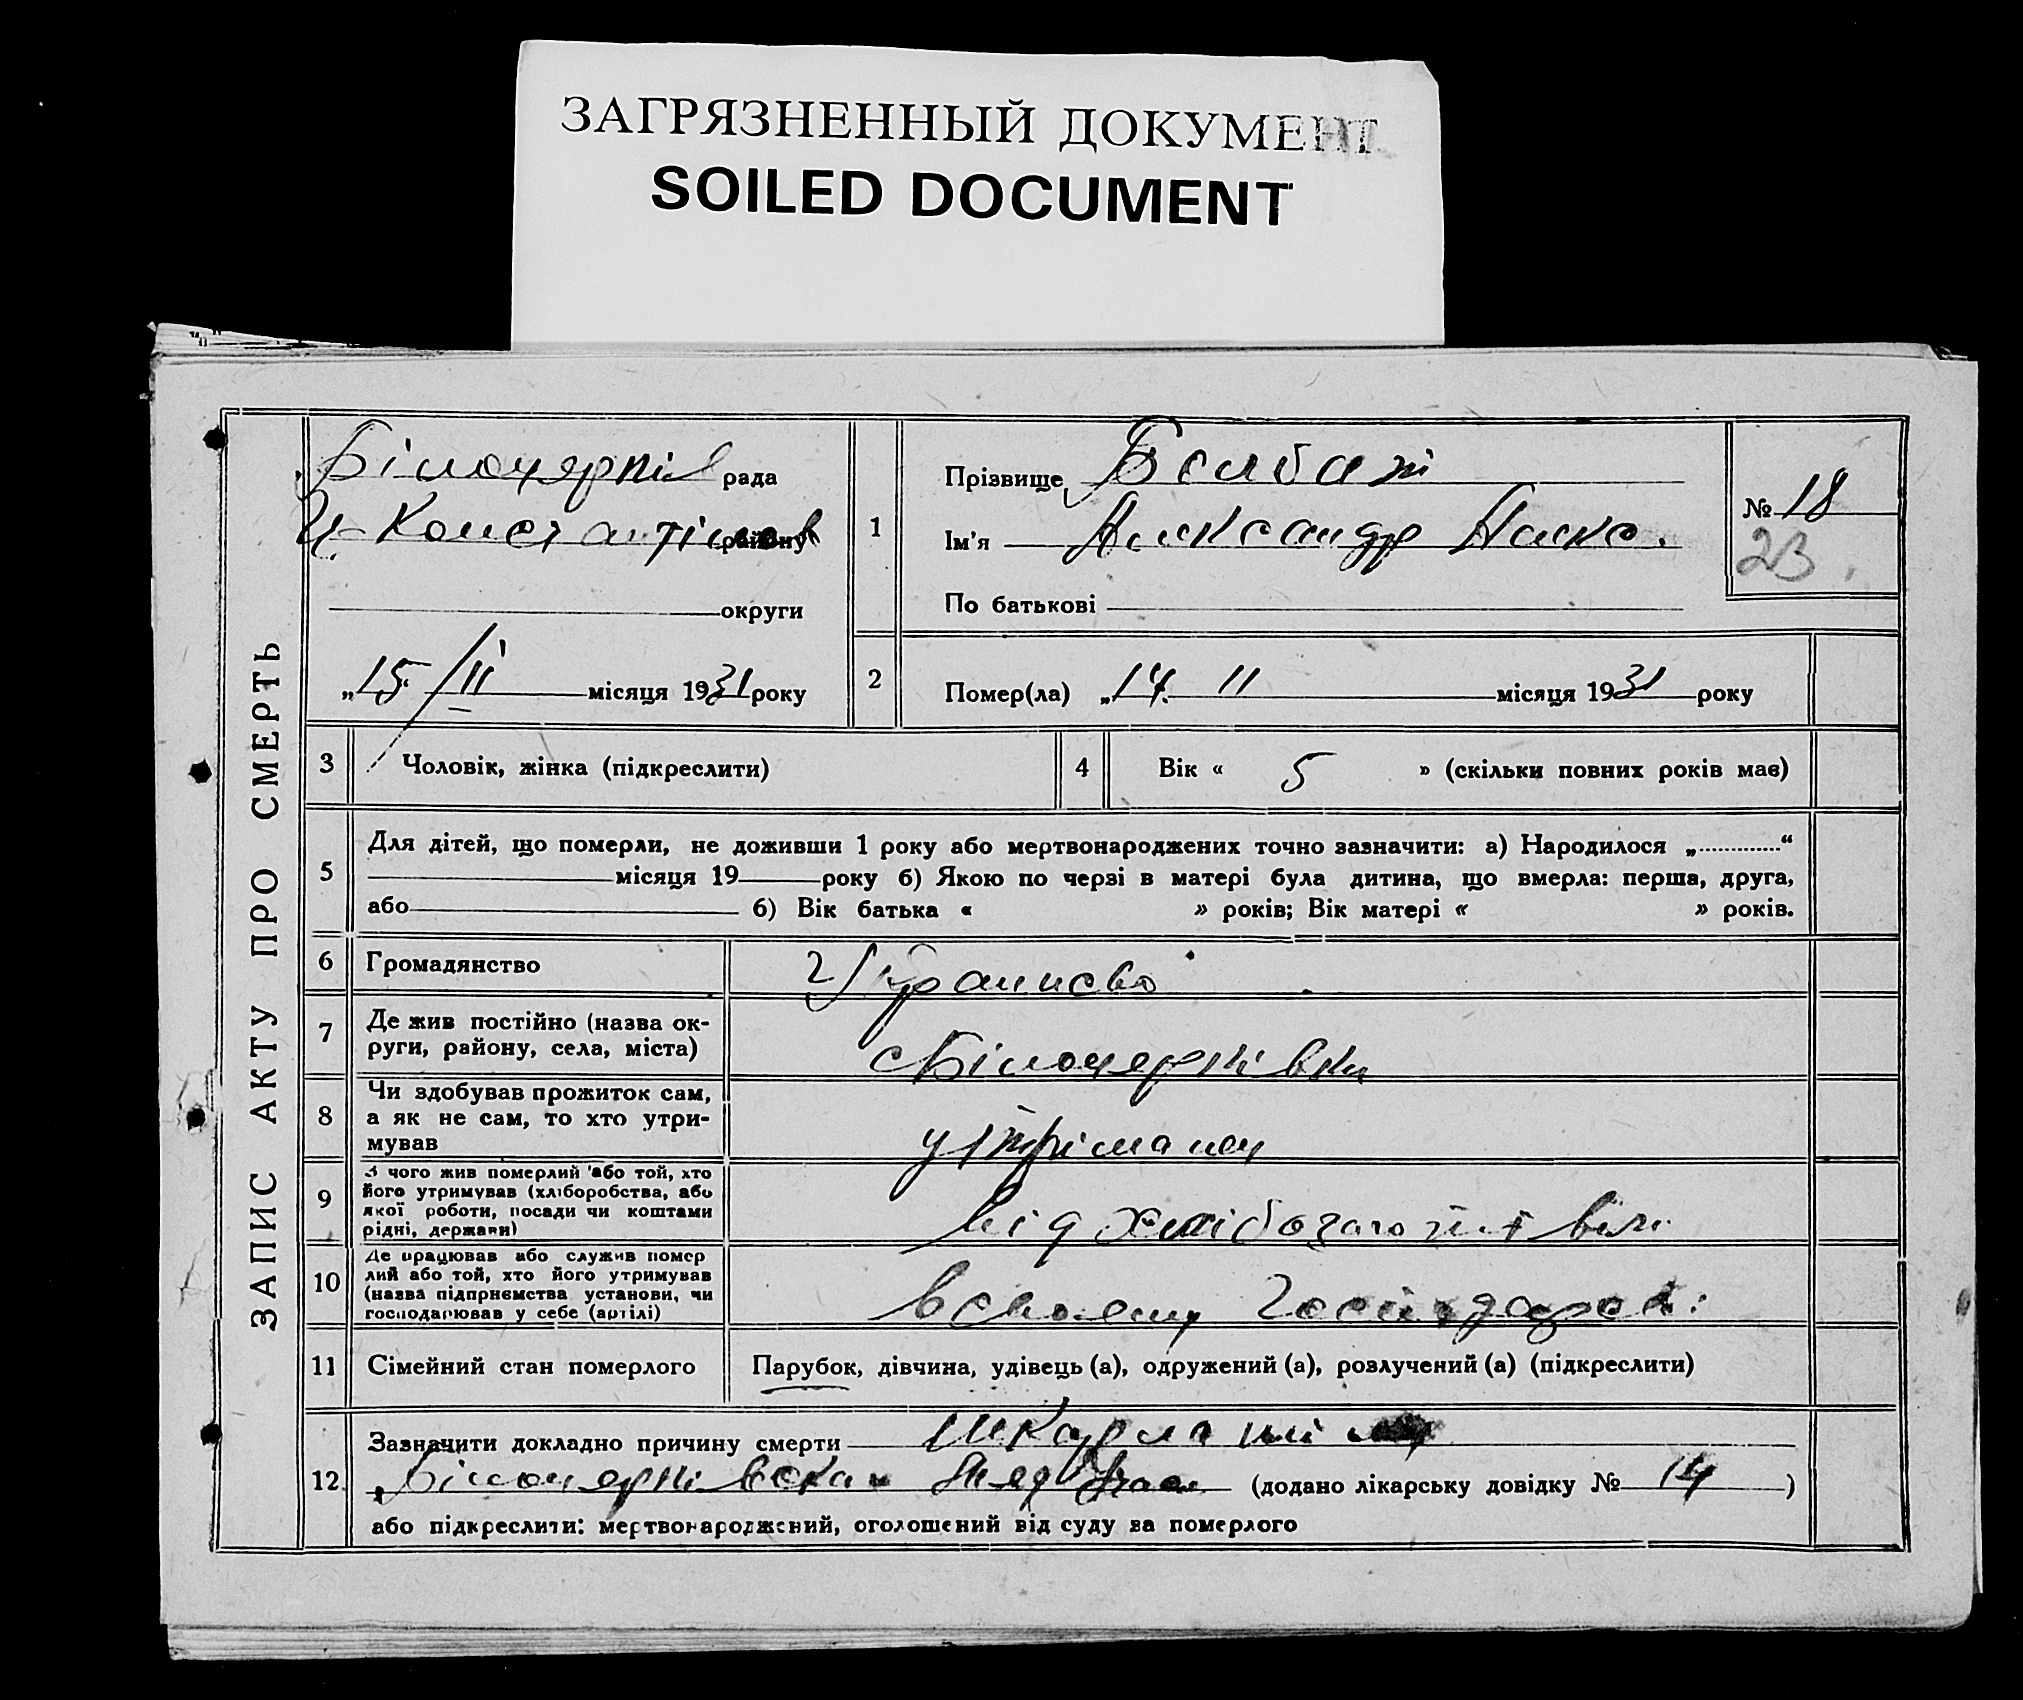 ЗАГРЯЗНЕННЫЙ ДОКУМЕНТ
SOILED DOCUMENT
ЗАПИС АКТУ ПРО СМЕРТЬ
Білочеркі рада
району
округи
„15 / II місяця 1931 року
1
Прізвище
Ім'я Александр
По батькові
№ 18
23
2
Помер(ла) „14. 11 місяця 1931 року
3 Чоловік, жінка (підкреслити)
4 Вік « 5 » (скільки повних років має)
5
Для дітей, що померли, не доживши 1 року або мертвонароджених точно зазначити: а) Народилося „ “
місяця 19 року б) Якою по черзі в матері була дитина, що вмерла: перша, друга,
або б) Вік батька « » років; Вік матері « » років.
6 Громадянство
7
Де жив постійно (назва ок-
руги, району, села, міста)
с Білочерківки
8
Чи здобував прожиток сам,
а як не сам, то хто утри-
мував
9
З чого жив померлий або той, хто
його утримував (хліборобства, або
якої роботи, посади чи коштами
рідні, держави)
від
10
Де працював або служив помер
лий або той, хто його утримував
(назва підприємства установи, чи
господарював у себе (артілі)
в своему
11 Сімейний стан померлого
Парубок, дівчина, удівець (а), одружений (а), розлучений (а) (підкреслити)
12
Зазначити докладно причину смерти
Білочерківска (додано лікарську довідку № 14 )
або підкреслити: мертвонароджений, оголошений від суду за померлого